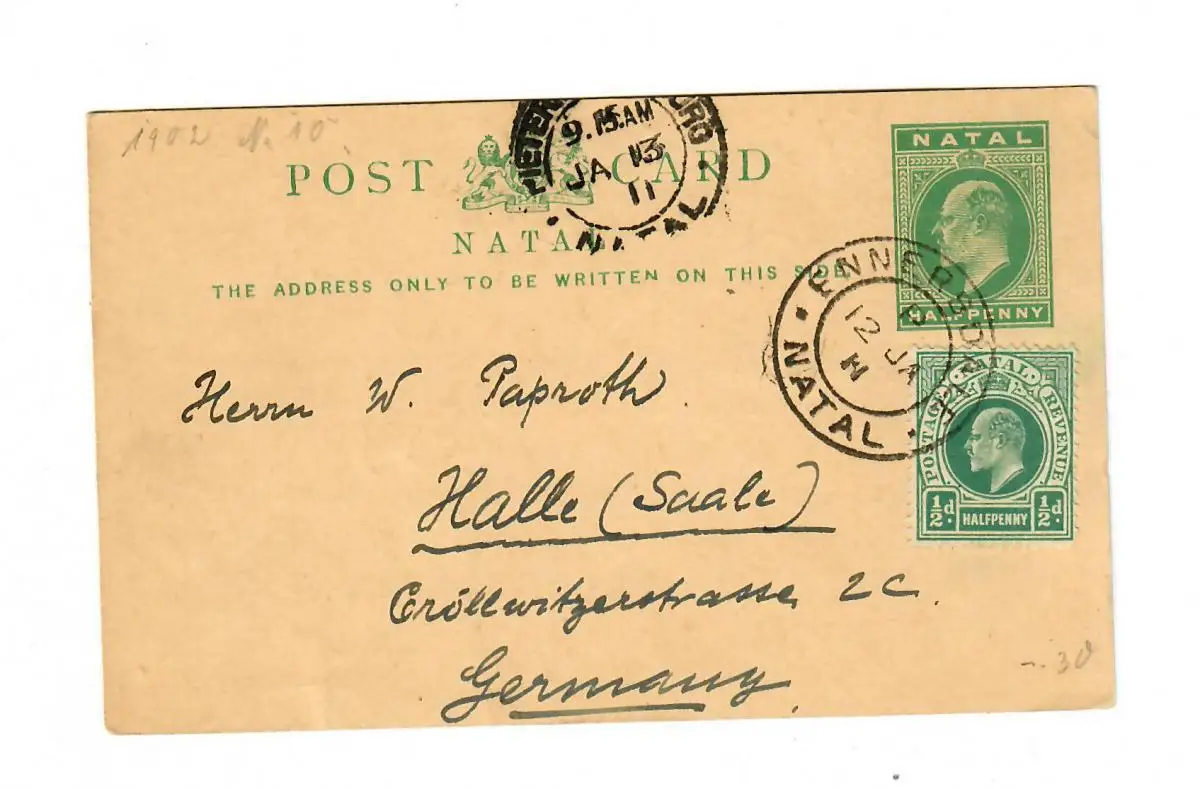 1902 N. 10
9.15AM
JA 13
11
NATAL
POST CARD
NATAL
THE ADDRESS ONLY TO BE WRITTEN ON THIS SIDE.
NATAL
HALFPENNY
ENNERSDALE
12 JA
NATAL
NATAL
POSTAGE REVENUE
½d. HALFPENNY ½d.
Herrn W. Paproth
Halle (Saale)
Cröllwitzerstrasse 2c.
Germany